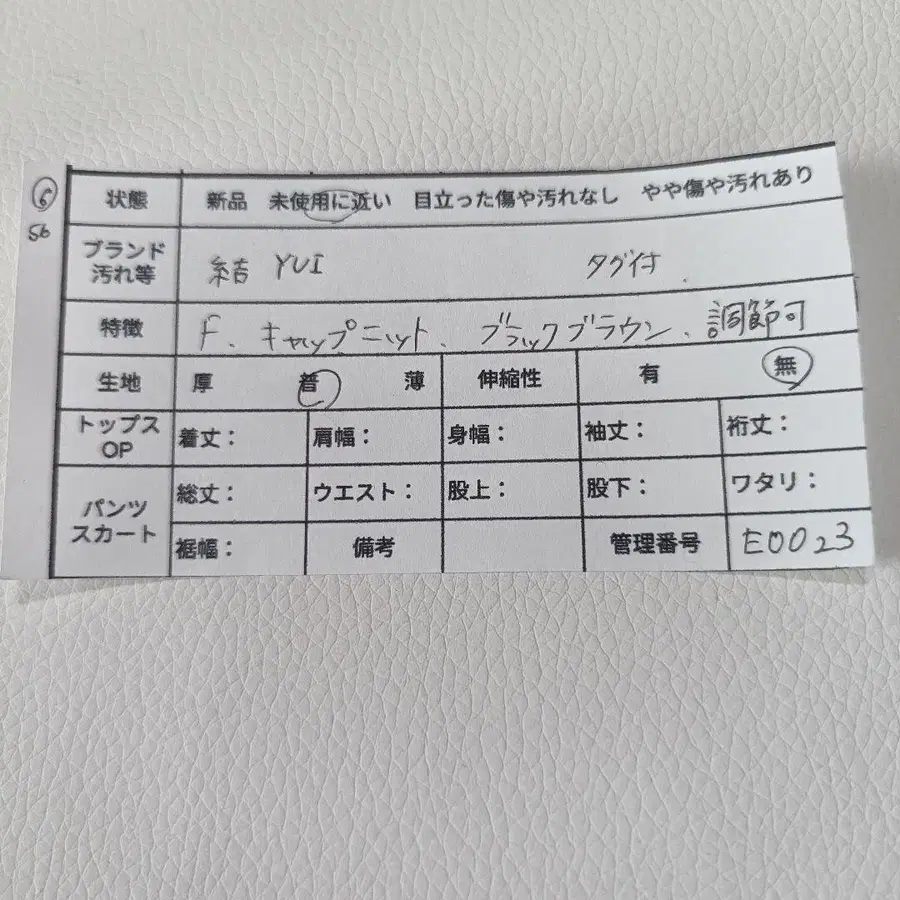 ⑥ 状態 新品 未使用に近い 目立った傷や汚れなし やや傷や汚れあり
56
ブランド 汚れ等 結 YUI タグ付
特徴 F、キャップニット、ブラックブラウン、調節可
生地 厚 普 薄 伸縮性 有 無
トップス OP 着丈: 肩幅: 身幅: 袖丈: 裄丈:
パンツ スカート 総丈: ウエスト: 股上: 股下: ワタリ:
裾幅: 備考 管理番号 E0023